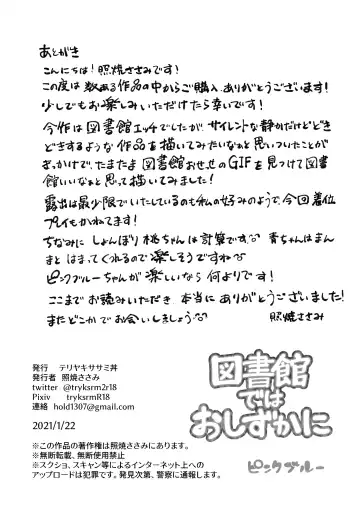 あとがき
こんにちは！照焼ささみです！
この度は数ある作品の中からご購入、ありがとうございます！
少しでもお楽しみいただけたら幸いです！
今作は図書館エッチでしたが、サイレントな静かだけどどき
どきするような作品を描いてみたいなぁと思いついたことが
きっかけで、たまたま図書館おせっせのGIFを見つけて図書
館いいなぁと思って描いてみました！
露出は最少限でいたしているのも私の好みのようで、今回着位
プレイもかねてます！
ちなみにしょんぼり桃ちゃんは計算です 青ちゃんはまん
まとはまってくれるので楽しそうですね
ピンクブルーちゃんが楽しいなら何よりです！
ここまでお読みいただき本当にありがとうございました！
またどこかでお会いしましょう
照焼ささみ
発行 テリヤキササミ丼
発行者 照焼ささみ
twitter @tryksrm2r18
Pixiv tryksrmR18
連絡 hold1307@gmail.com
2021/1/22
※この作品の著作権は照焼ささみにあります。
※無断転載、無断使用禁止
※スクショ、スキャン等によるインターネット上への
アップロードは犯罪です。発見次第、警察に通報します。
図書館
では
おしずかに
ピンクブルー